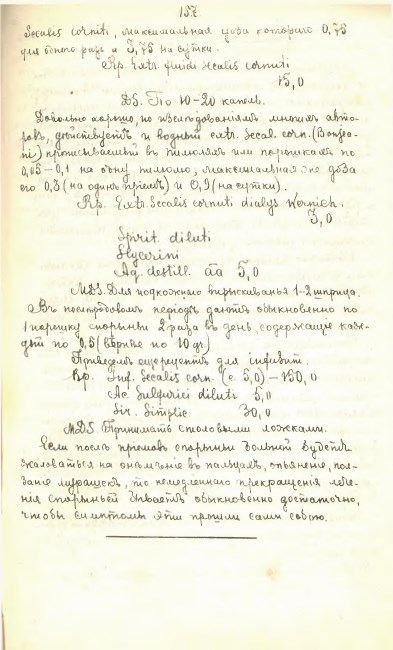 157.
Secalis cornuti, максимальная доза котораго 0,75
для одного раза и 3,75 на сутки.
Rp. Extr. fluidi secalis cornuti
15,0
DS. По 10-20 капель.
Довольно хорошо, по изследованіямъ многихъ авто-
ровъ, дѣйствуетъ и водный extr. Secal. corn. (Bonjea-
ni) прописываемый въ пилюляхъ или порошкахъ по
0,05-0,1 на одну пилюлю; максимальная же доза
его 0,3 (на одинъ пріемъ) и 0,9 (на сутки).
Rp. Extr. Secalis cornuti dialys Wernich.
3,0
Spirit. diluti
Glycerini
Aq. destill. āā 5,0
MDS. Для подкожнаго впрыскиванья 1-2 шприца.
Въ послѣродовомъ періодѣ даютъ обыкновенно по
1 порошку спорыньи 2 раза въ день, содержащие каж-
дый по 0,5 (вѣрнѣе по 10 gr.)
Приведемъ еще рецептъ для infus.
Rp. Inf. Secalis corn. (e. 5,0) — 150,0
Ac. Sulfurici diluti 5,0
Sir. Simplic. 30,0
MDS. Принимать столовыми ложками.
Если послѣ пріемовъ спорыньи больной будетъ
жаловаться на онѣмѣніе въ пальцахъ, опьяненіе, пол-
заніе мурашекъ, то немедленнаго прекращенія лече-
нія спорыньей бываетъ обыкновенно достаточно,
чтобы симптомы эти прошли сами собою.